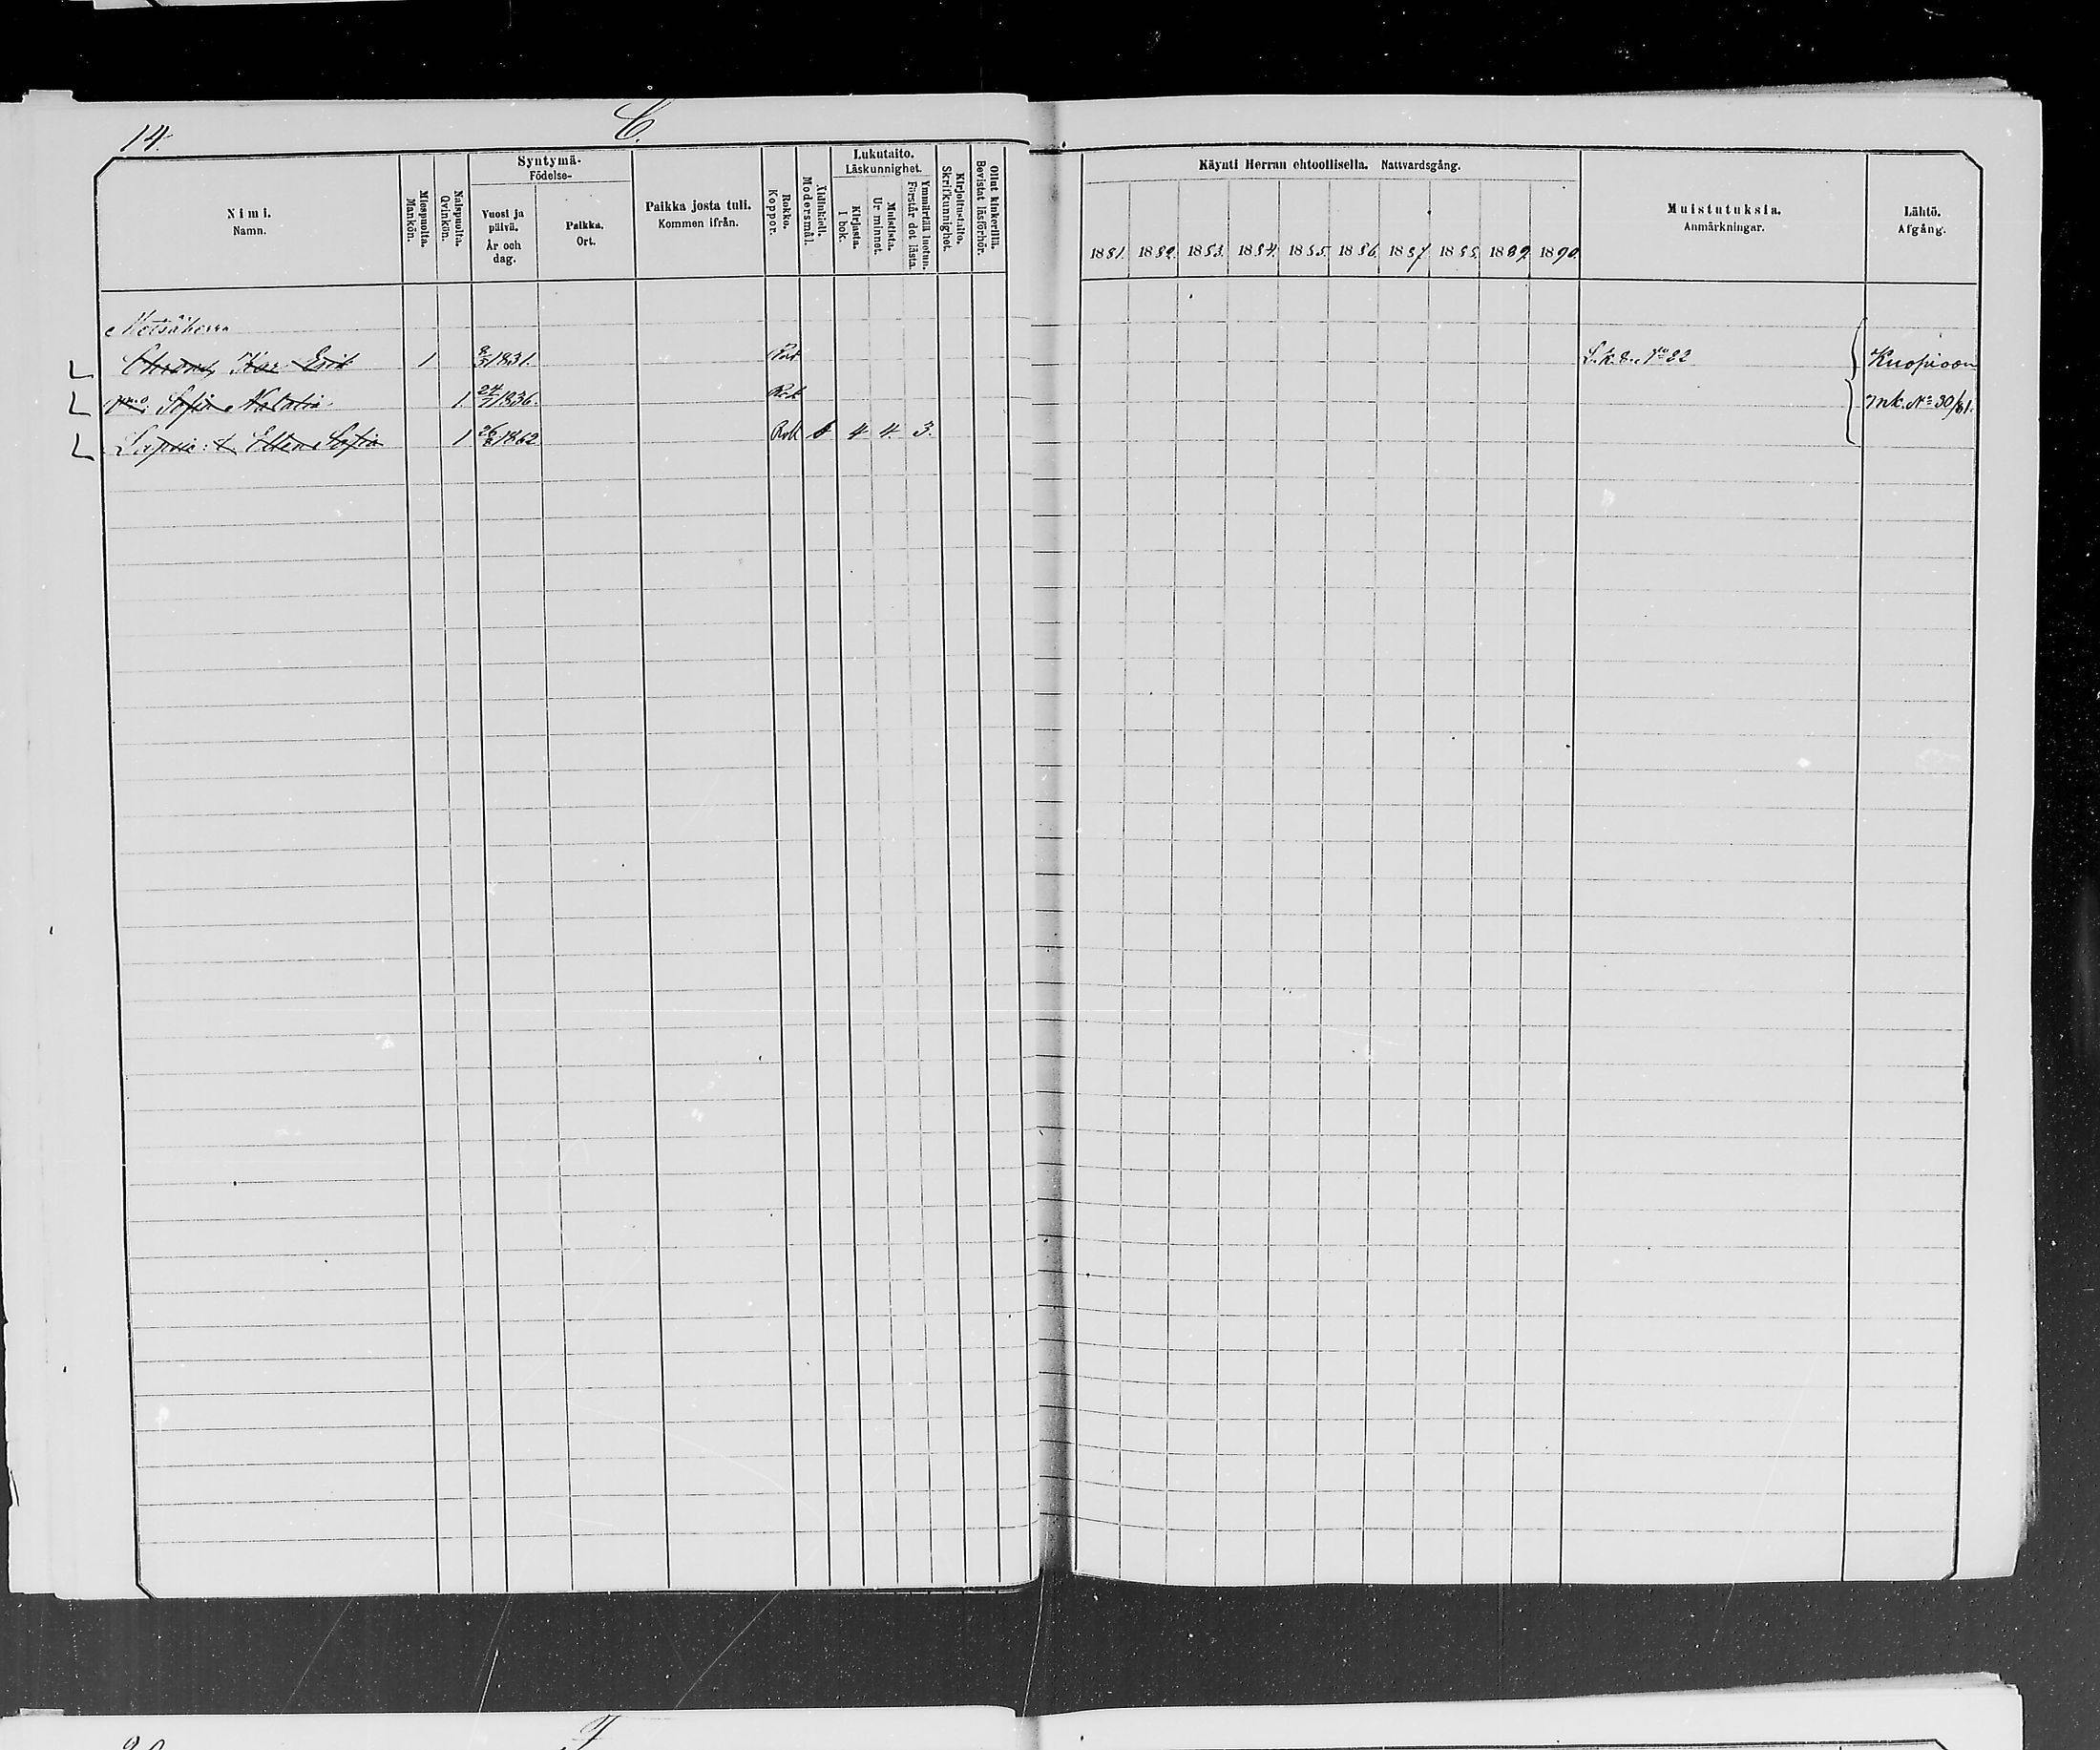 14.
C.
Nimi.
Namn.
Miespuolta.
Mankön.
Naispuolta.
Qvinkön.
Syntymä-
Födelse-
Vuosi ja päivä.
År och dag.
Paikka.
Ort.
Paikka josta tuli.
Kommen ifrån.
Rokko.
Koppor.
Äidinkieli.
Modersmål.
Lukutaito.
Läskunnighet.
Kirjasta.
I bok.
Muistista.
Ur minnet.
Ymmärtää luetun.
Förstår det lästa.
Kirjoitustaito.
Skrifkunnighet.
Ollut kinkerillä.
Bevistat läsförhör.
Käynti Herran ehtoollisella. Nattvardsgång.
1881. 1882. 1883. 1884. 1885. 1886. 1887. 1888. 1889. 1890.
Muistutuksia.
Anmärkningar.
Lähtö.
Afgång.
Metsäherra
Erik 1 1831. L.k.s. 22 Kuopioon
vmo Sofia Natalia 1. 24/7 1836. Rok mk. No 30/81.
Ellen Sofia 1 1862 Rok 4 4. 3.